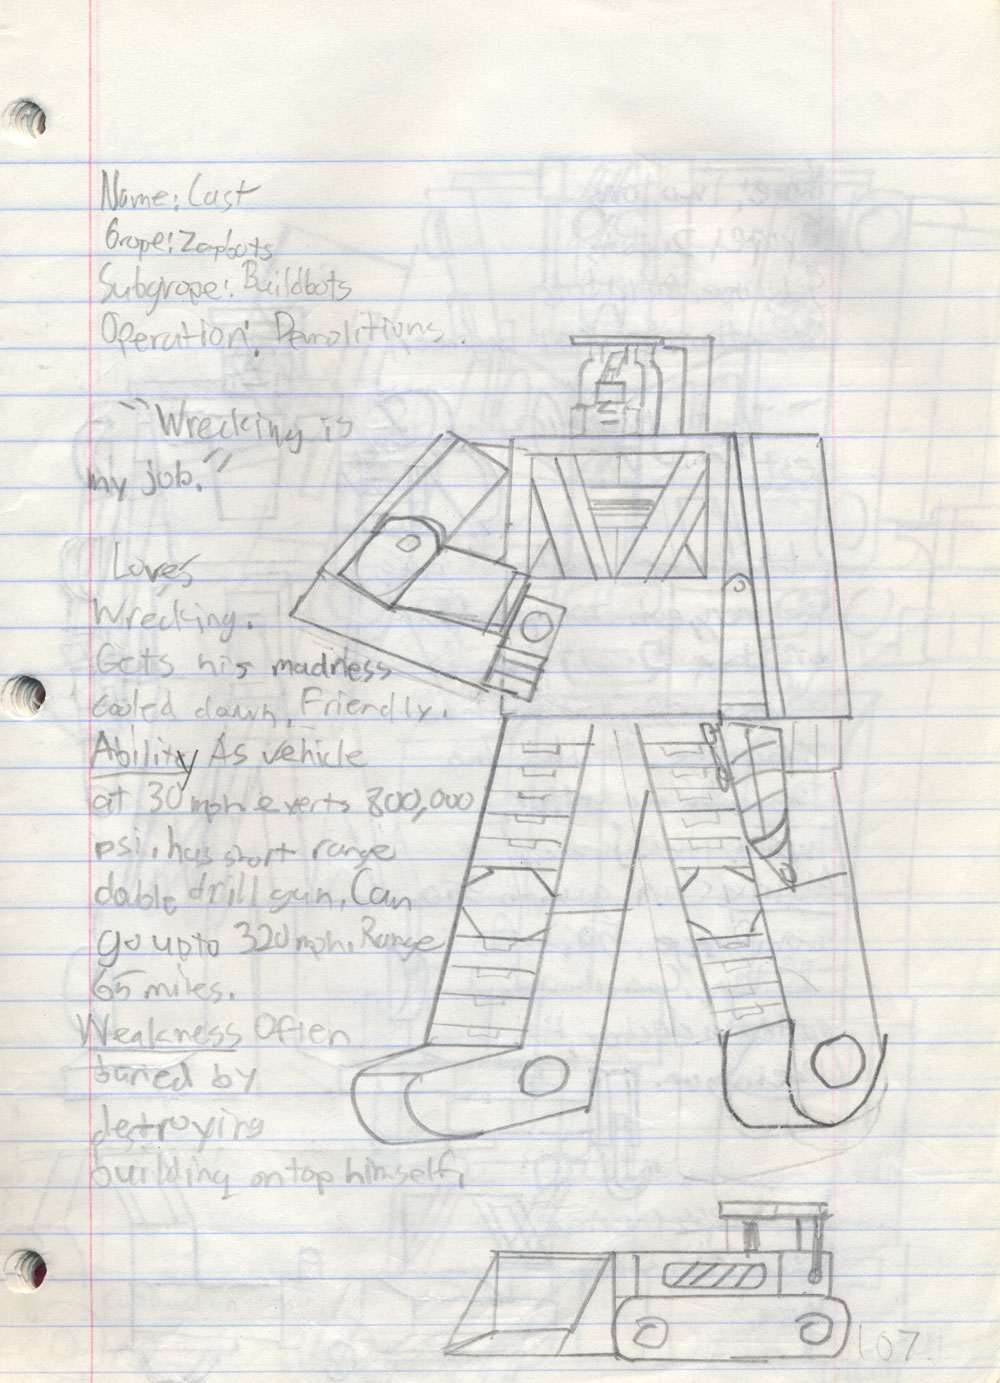 Name: Cast
Grope: Zapbots
Subgrope: Buildbots
Operation: Demolitions.
"Wrecking is
my job."
Loves
Wrecking.
Gets his madness
cooled down. Friendly.
Ability As vehicle
at 30 mph exerts 800,000
psi, has short range
doble drill gun. Can
go up to 320 mph. Range
65 miles.
Weakness Often
buried by
destroying
building on top himself.
107